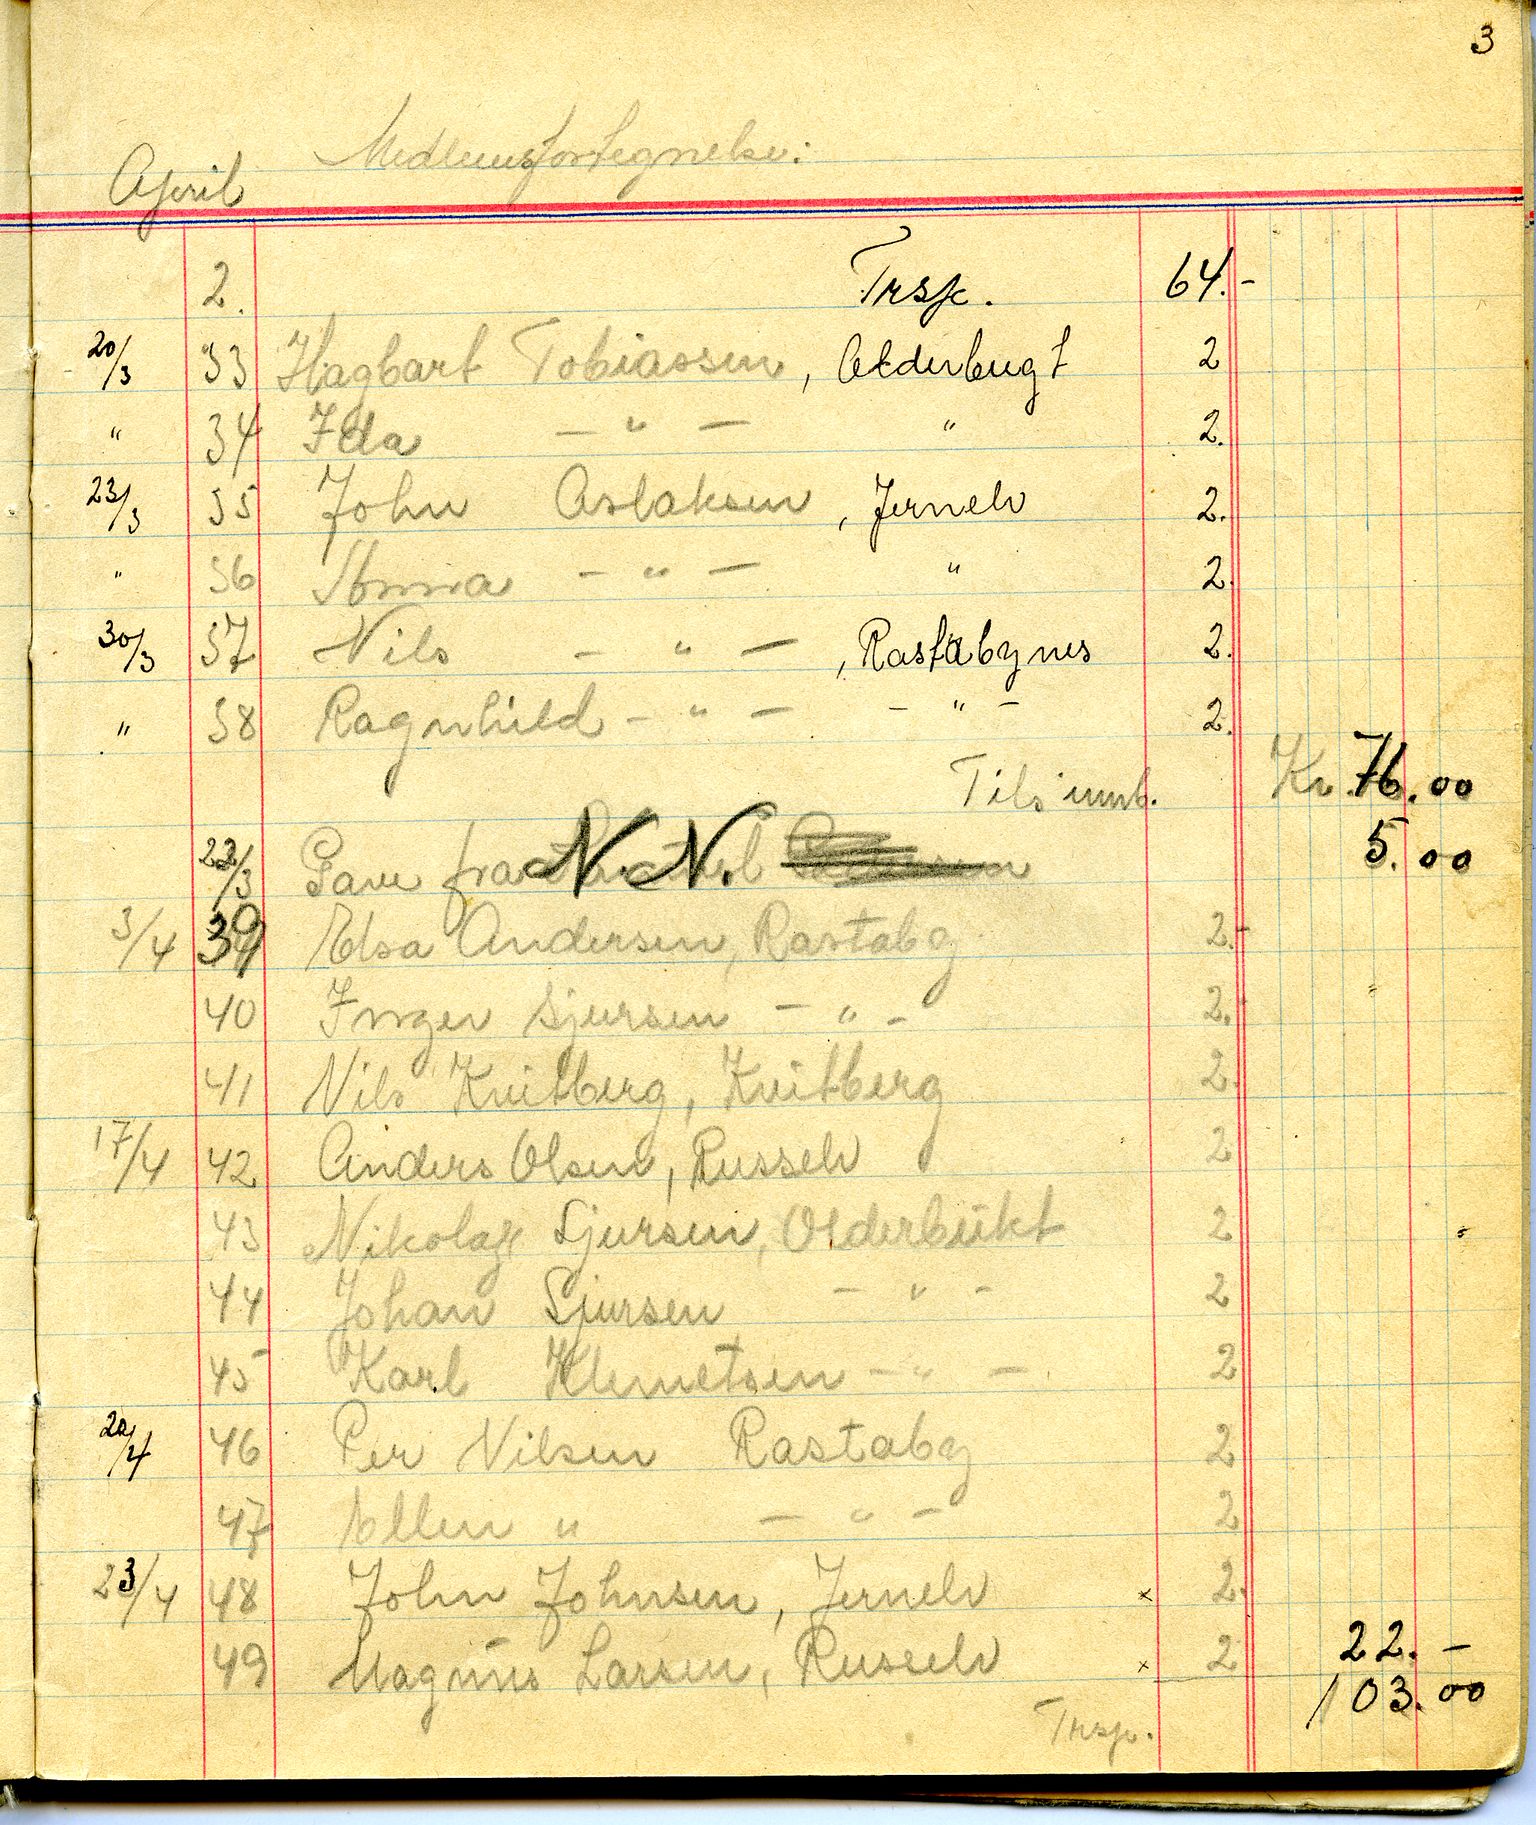 3
Medlemsfortegnelse:
April
2. Trsp. 64.-
20/3 33 Hagbart Tobiassen, Olderbugt 2
" 34 Ida — " — " 2.
23/3 35 John Aslaksen, Jernelv 2.
" 36 Anna — " — " 2.
30/3 37 Nils — " — , Rastabynes 2.
" 38 Ragnhild — " — — " — 2.
Tils innb. Kr. 76.00
22/3 Gave fra N. N. 5.00
3/4 39 Elsa Andersen, Rastaby 2.-
40 Inger Sjursen — " — 2.
41 Nils Kvitberg, Kvitberg 2.
17/4 42 Anders Olsen, Russelv 2
43 Nikolay Sjursen, Olderbukt 2
44 Johan Sjursen — " — 2
45 Karl Klemetsen — " — 2
20/4 46 Per Nilsen Rastaby 2
47 Ellen " — " — 2
23/4 48 John Johnsen, Jernelv x 2.
49 Magnus Larsen, Russelv x 2 22.-
103.00
Trsp.